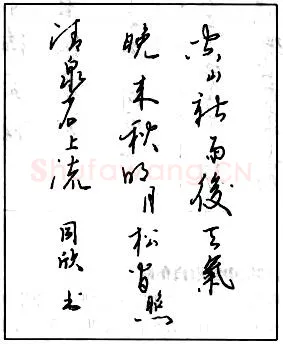 空山新雨後天氣
晚来秋明月松间照
清泉石上流 周欣书
Shufawang.CN